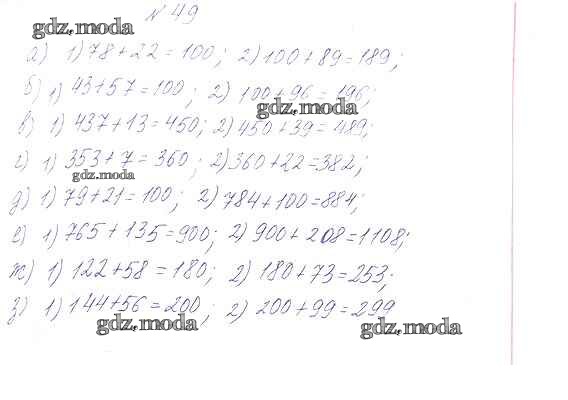 № 49
gdz.moda
а) 1) 78+22=100; 2) 100+89=189;
б) 1) 43+57=100; 2) 100+96=196;
gdz.moda
в) 1) 437+13=450; 2) 450+39=489;
г) 1) 353+7=360; 2) 360+22=382;
gdz.moda
д) 1) 79+21=100; 2) 784+100=884;
е) 1) 765+135=900; 2) 900+208=1108;
ж) 1) 122+58=180; 2) 180+73=253;
з) 1) 144+56=200; 2) 200+99=299
gdz.moda
gdz.moda